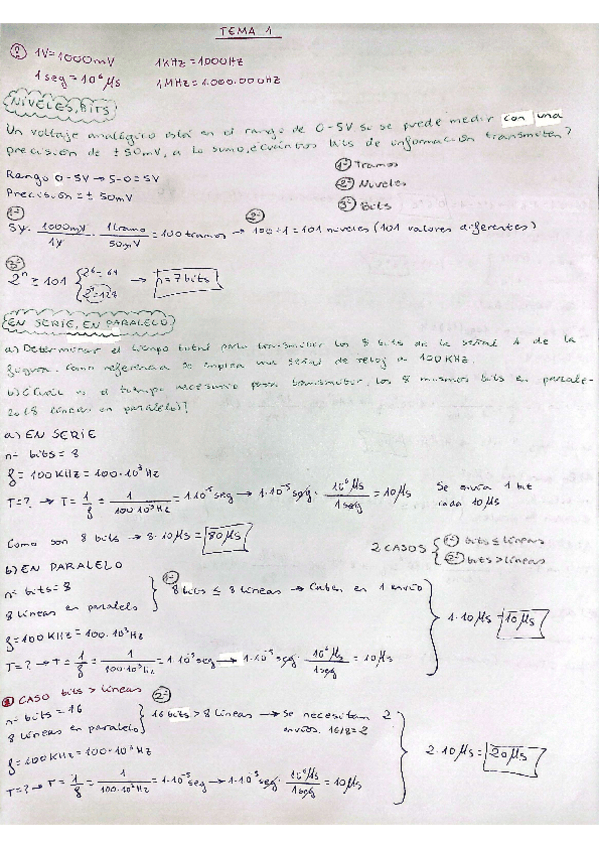 TEMA 1
1V=1000mV 1KHz=1000Hz
1seg=10⁶μs 1MHz=1.000.000Hz
NIVELES, BITS
Un voltaje analógico está en el rango de 0-5V si se puede medir con una
precisión de ±50mV, a lo sumo, ¿cuántos bits de información transmiten?
Rango 0-5V → 5-0=5V
Precisión=±50mV
1- Tramos
2- Niveles
3- Bits
1-
5V · 1000mV/1V · 1tramo/50mV = 100 tramos → 100+1=101 niveles (101 valores diferentes)
2-
3-
2ⁿ ≥ 101 { 2⁶=64 2⁷=128 → n=7 bits
EN SERIE, EN PARALELO
a) Determinar el tiempo total para transmitir los 8 bits de la señal A de la
figura. Como referencia se emplea una señal de reloj de 100KHz.
b) ¿Cuál es el tiempo necesario para transmitir los 8 mismos bits en parale-
lo (8 líneas en paralelo)?
a) EN SERIE
nº bits=8
f=100KHz=100·10³Hz
T=? → T=1/f=1/100·10³Hz=1·10⁻⁵seg → 1·10⁻⁵seg · 10⁶μs/1seg = 10μs Se envía 1 bit
cada 10μs
Como son 8 bits → 8·10μs = 80μs
2 CASOS { 1- bits ≤ líneas
2- bits > líneas
b) EN PARALELO
nº bits=8
8 líneas en paralelo } 1- 8 bits ≤ 8 líneas → Caben en 1 envío
f=100KHz=100·10³Hz
T=? → T=1/f=1/100·10³Hz=1·10⁻⁵seg → 1·10⁻⁵seg · 10⁶μs/1seg = 10μs
1·10μs = 10μs
CASO bits > líneas 2-
nº bits=16
8 líneas en paralelo } 16 bits > 8 líneas → Se necesitan 2
envíos. 16/8=2
f=100KHz=100·10³Hz
T=? → T=1/f=1/100·10³Hz=1·10⁻⁵seg → 1·10⁻⁵seg · 10⁶μs/1seg = 10μs
2·10μs = 20μs